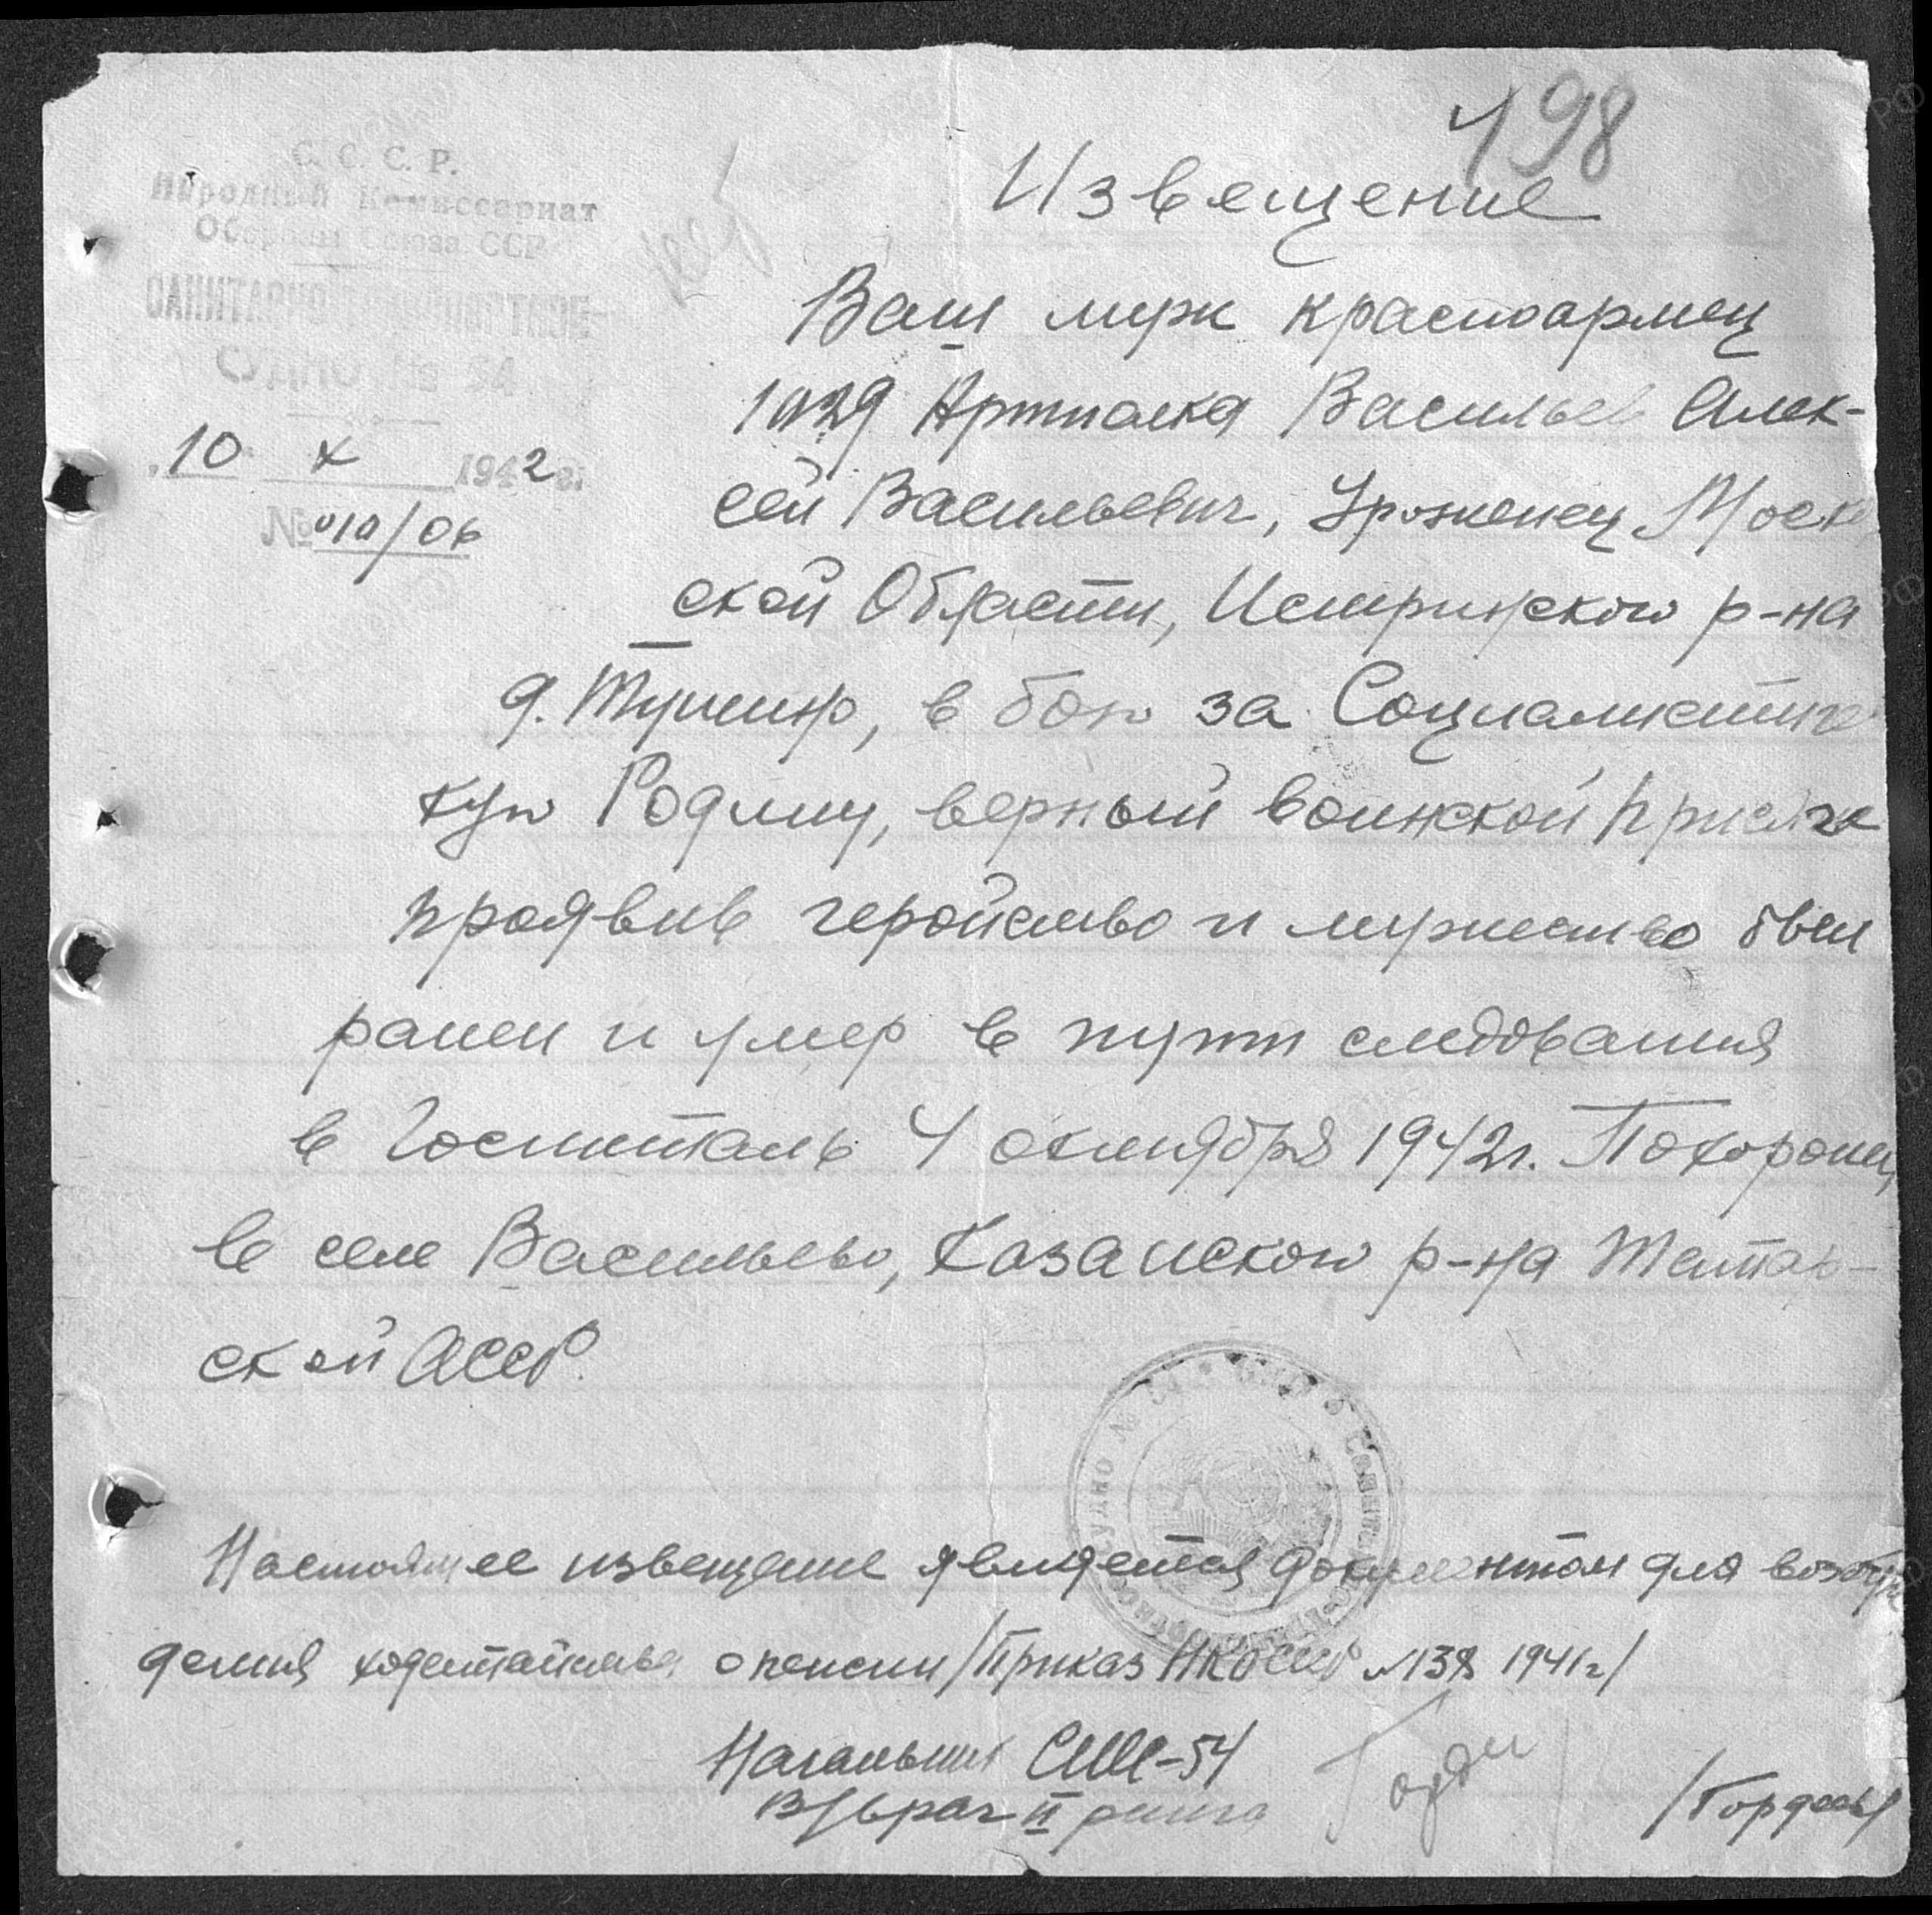 198
С. С. С. Р.
Народный Комиссариат
Обороны Союза ССР
САНИТАРНО-ТРАНСПОРТНОЕ
СУДНО № 54
10 X 1942 г.
№ 010/06
Извещение
Ваш муж красноармеец
1029 Артполка Васильев Алек-
сей Васильевич, Уроженец Моск
ской Области, Истринского р-на
д. , в бою за Социалистиче
кую Родину, верный воинской присяге
проявив геройство и мужество был
ранен и умер в пути следования
в Госпиталь 4 октября 1942г. Похоронен
в селе Васильево, Казанского р-на Татар-
ской АССР.
Настоящее извещение является документом для возбуж
дения ходатайства о пенсии /Приказ НКО СССР № 138 1941г/
Начальник -54
В/врач II ранга